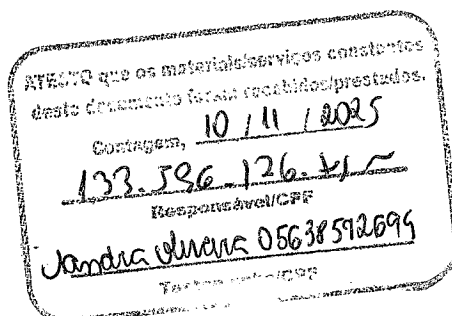 ATESTO que os materiais/serviços constantes
deste documento foram recebidos/prestados.
Contagem, 10 / 11 / 2025
133.596.126.
Responsável/CPF
Sandra Oliveira 05638592694
Testemunha/CPF